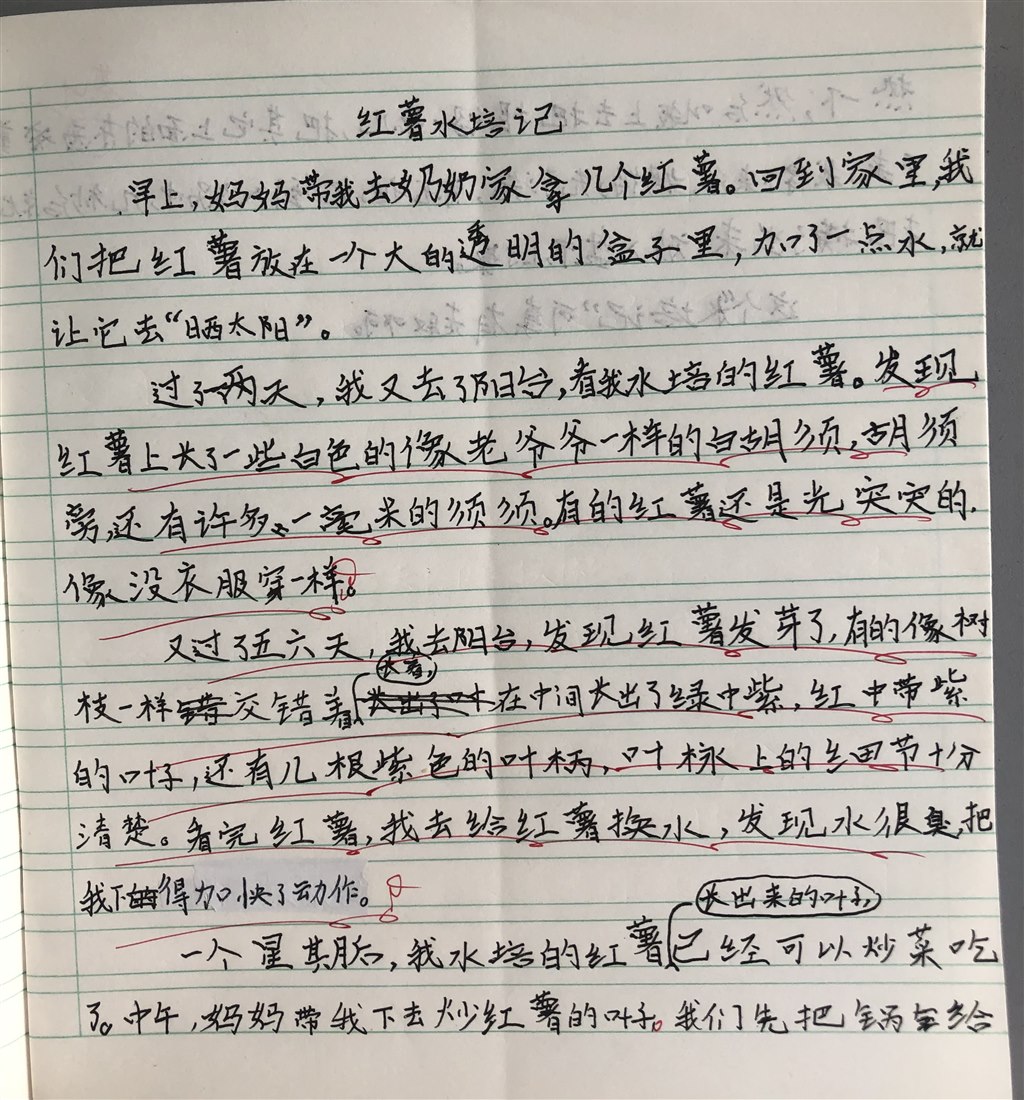 红薯水培记
早上,妈妈带我去奶奶家拿几个红薯。回到家里,我
们把红薯放在一个大的透明的盒子里,加了一点水,就
让它去“晒太阳”。
过了两天,我又去了阳台,看我水培的红薯。发现
红薯上长了一些白色的像老爷爷一样的白胡须,胡须
旁,还有许多、一定呆的须须。有的红薯还是光突突的.
像没衣服穿一样。
又过了五六天,我去阳台,发现红薯发芽了,有的像树
枝一样交错着长着,在中间长出了绿中紫,红中带紫
的叶子,还有几根紫色的叶柄,叶柄上的细节十分
清楚。看完红薯,我去给红薯换水,发现水很臭,把
我下的得加快了动作。
一个星其月后,我水培的红薯长出来的叶子,已经可以炒菜吃
了。中午,妈妈带我下去炒红薯的叶子。我们先把锅给